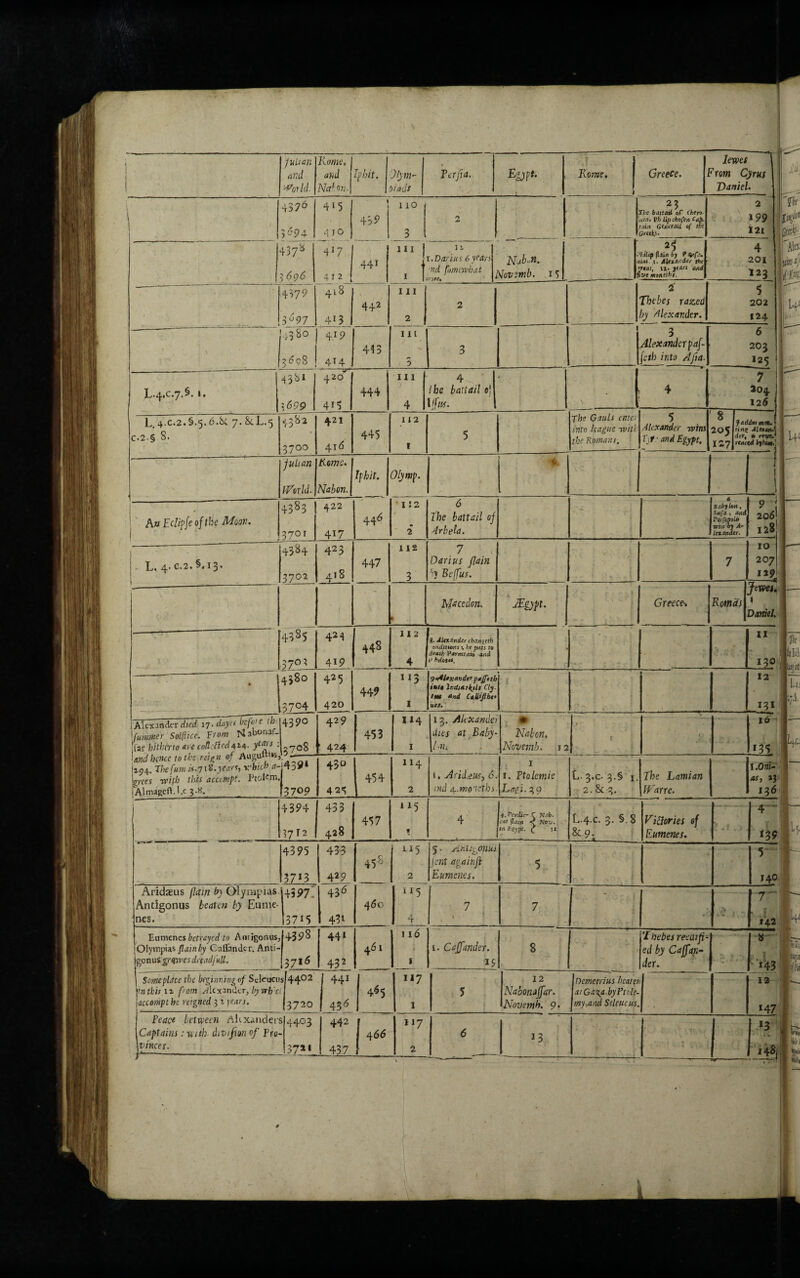 Julian and World. | Rome. and Nabon. | Iphit. | Olympiads | Persia. | Egypt. | Rome. | Greece. | Iewes From Cyrus Daniel.
4376 3694 | 415 410 | 439 | 110 3 | 2 | 23 | 2 199 121
4378 3696 | 417 412 | 441 | 111 1 | 1. Darius 6 years and somewhat | Nabon. Novemb. 15 | 25 | 4 201 123
4379 3697 | 418 413 | 442 | 111 2 | 2 | 2 Thebes razed by Alexander. | 5 202 124
4380 3698 | 419 414 | 443 | 111 3 | 3 | 3 Alexander passeth into Asia. | 6 203 125
L.4.c.7.§. 1. | 4381 3699 | 420 415 | 444 | 111 4 | 4 the battail of Issus. | 4 | 7 204 126
L, 4.c.2.§.5.6.& 7.& L.5 c.2.§ 8. | 4382 3700 | 421 416 | 445 | 112 1 | 5 | The Gauls enter into league with the Romans. | 5 Alexander wins Tyr and Egypt. | 8 205 127
Julian World. | Rome. Nabon. | Iphit. | Olymp.
An Eclipse of the Moon. | 4383 3701 | 422 417 | 446 | 112 2 | 6 The battail of Arbela. | 6 Babylon, Susa, and Persepolis won by Alexander. | 9 206 128
L. 4. c.2. §.13. | 4384 3702 | 423 418 | 447 | 112 3 | 7 Darius slain by Bessus. | 7 | 10 207 129
Macedon. | Ægypt. | Greece. | Romās | Jewes. Daniel.
4385 3703 | 424 419 | 448 | 112 4 | 8. Alexander changeth conditions, he puts to death Parmenio and Philotas. | 11 130
4380 3704 | 425 420 | 449 | 113 1 | 9. Alexander passeth into India: kils Clytus and Callisthenes. | 12 131
Alexander died 17. dayes before the summer Solstice. From Nabonassar hitherto are collected 424. years: and hence to the reign of Augustus, 294. The sum is 718. years, which agrees with this accompt. Ptolem. Almagest. l.c 3.8. | 4390 3708 | 429 424 | 453 | 114 1 | 13. Alexander dies at Babylon. | Nabon. Novemb. 12 | 16 135
4391 3709 | 430 425 | 454 | 114 2 | 1. Aridæus, 6. and 4. moneths. | 1 1. Ptolemie Lagi. 39 | L. 3.c. 3.§ 1. 2. & 3. | The Lamian Warre. | 136
4394 3712 | 433 428 | 457 | 115 1 | 4 | L.4.c. 3. §.8 & 9. | Victories of Eumenes. | 4 139
4395 3713 | 433 429 | 458 | 115 2 | 5. Antigonus sent against Eumenes. | 5 | 5 140
Aridæus slain by Olympias. Antigonus beaten by Eumenes. | 4397 3715 | 436 431 | 460 | 115 4 | 7 | 7 | 7 142
Eumenes betrayed to Antigonus, Olympias slain by Cassander. Antigonus growes dreadfull. | 4398 3716 | 441 432 | 461 | 116 1 | 1. Cassander. 19 | 8 | Thebes reedified by Cassander. | 8 143
Some place the beginning of Seleucus in this 12 from Alexander, by whose accompt he reigned 32 years. | 4402 3720 | 441 436 | 465 | 117 1 | 5 | 12 Nabonassar. Novemb. 9. | Demetrius beaten at Gaza. by Ptolemy, and Seleucus. | 12 147
Peace between Alexanders Captains: with division of Provinces. | 4403 3721 | 442 437 | 466 | 117 2 | 6 | 13 | 13 148